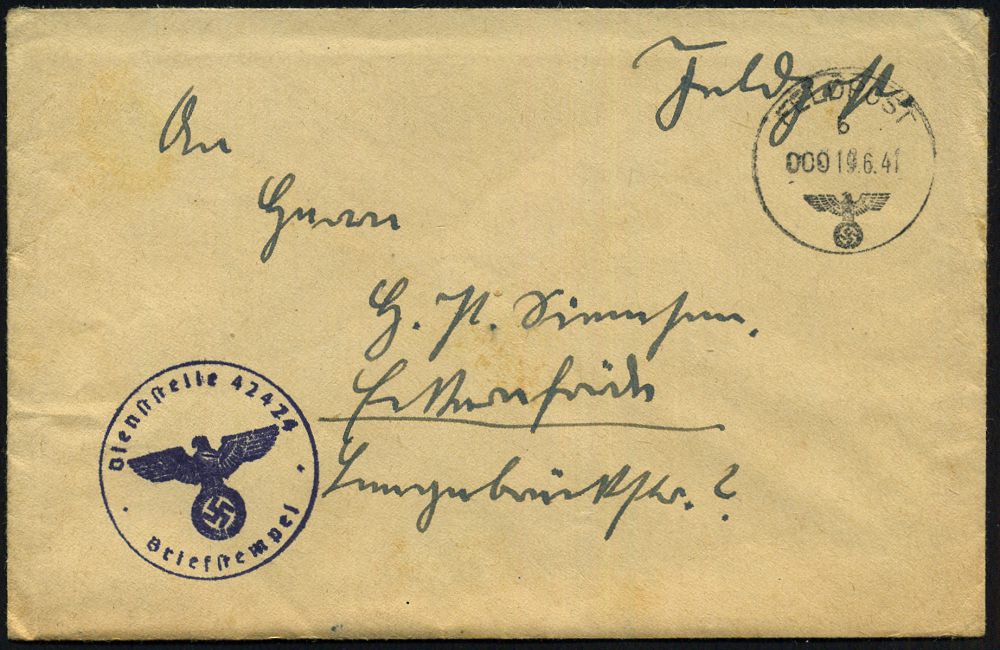 Feldpost.
FELDPOST
b
000 19.6.41
An
Herrn
H. P. Siemsen,
Eckernförde
Langebrückstr. 2
Dienststelle 42424
Briefstempel